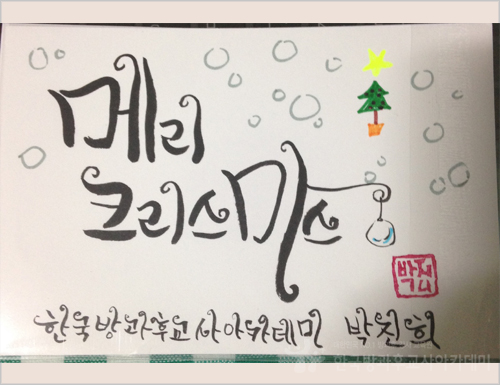 메리
크리스마스
박진희
한국방과후교사아카데미 박진희
한국방과후교사아카데미